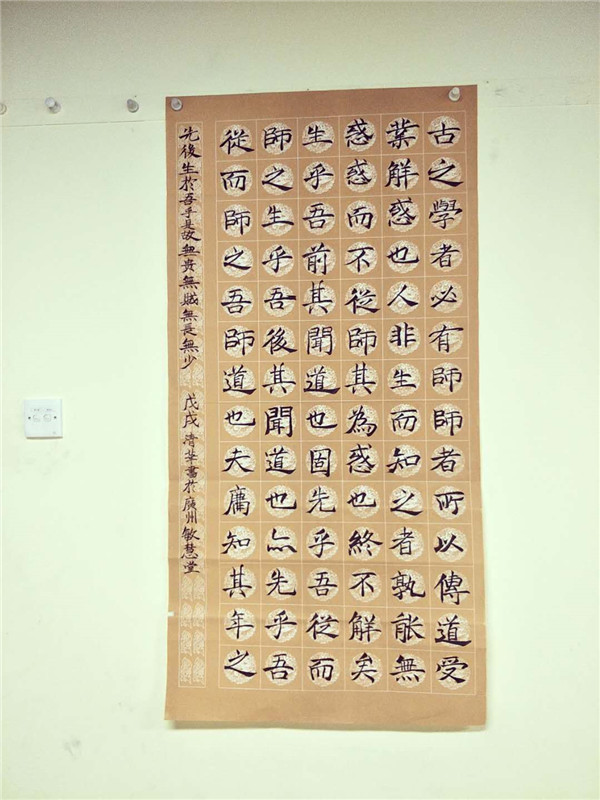 古之學者必有師師者所以傳道受
業解惑也人非生而知之者孰能無
惑惑而不從師其為惑也終不解矣
生乎吾前其聞道也固先乎吾從而
師之生乎吾後其聞道也亦先乎吾
從而師之吾師道也夫庸知其年之
先後生於吾乎是故無貴無賤無長無少 戊戌清華書於廣州敏慧堂